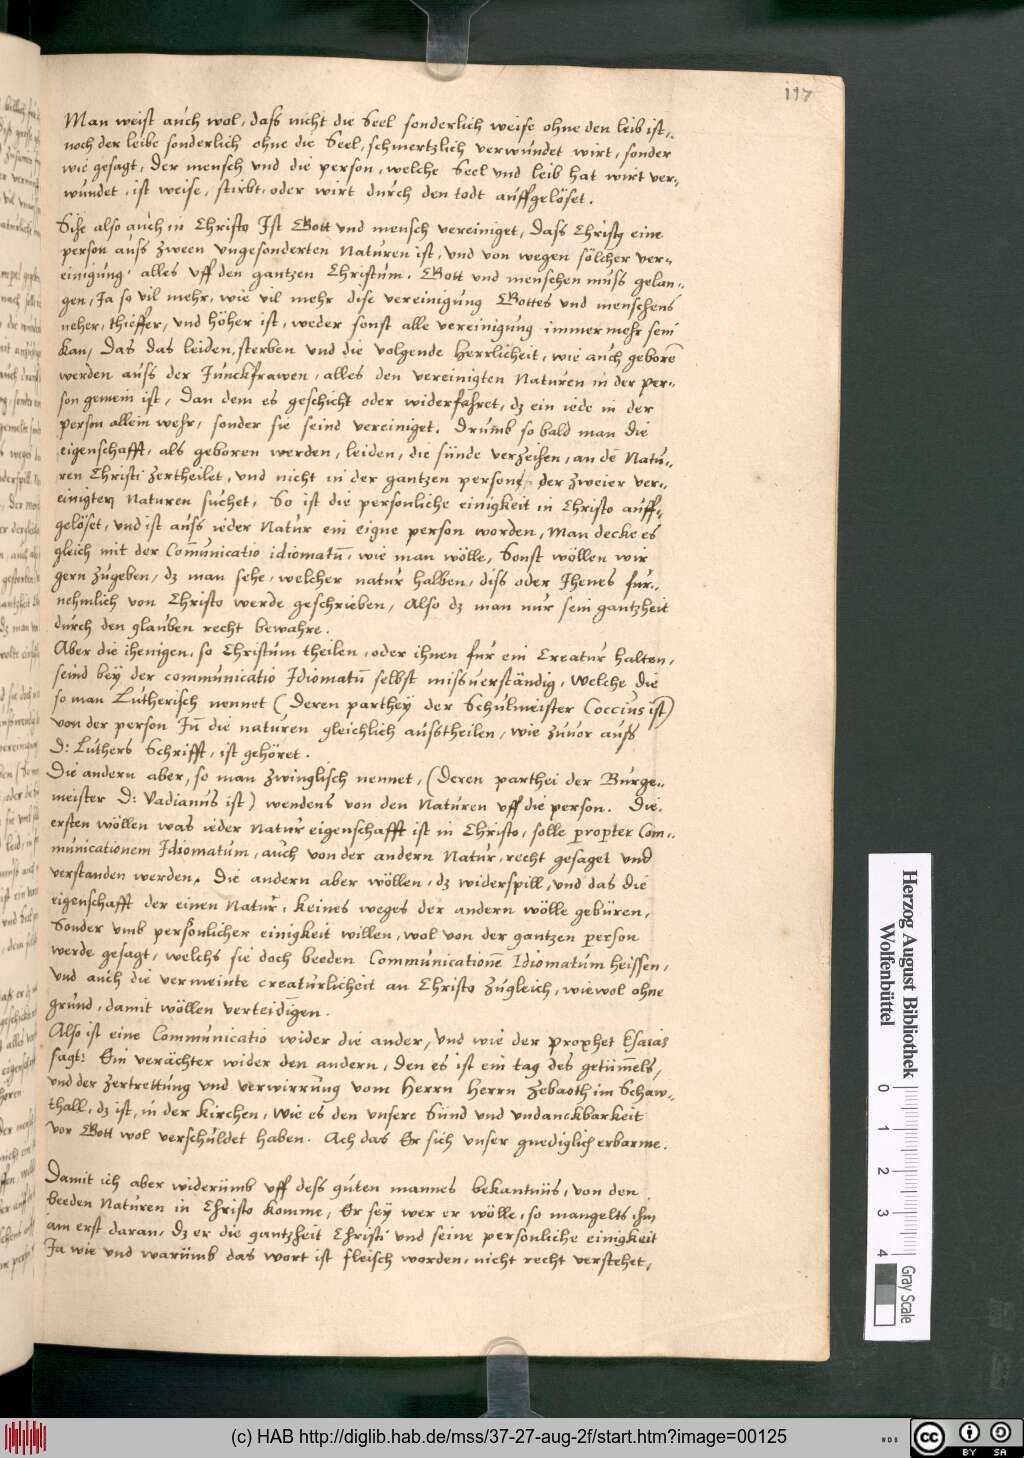 117
Man weist auch wol, dass nicht die Seel sonderlich weise ohne den leib ist,
noch der leibe sonderlich ohne die Seel, schmertzlich verwundet wirt, sonder
wie gesagt, Der mensch vnd die person, welche Seel vnd leib hat wirt ver-
wundet, ist weise, stirbt, oder wirt durch den todt auffgelöset.
Sihe also auch in Christo Ist Gott vnd mensch vereiniget, Dass Christus eine
person auss zween vngesonderten Naturen ist, vnd von wegen sölcher ver-
einigung alles vff den gantzen Christum, Gott vnd menschen muss gelan-
gen, Ja so vil mehr, wie vil mehr dise vereinigung Gottes vnd menschens
neher, thieffer, vnd höher ist, weder sonst alle vereinigung immer mehr sein
kan, Das das leiden, sterben vnd die volgende Herrlicheit, wie auch geborē
werden auss der Junckfrawen, alles den vereinigten Naturen in der per-
son gemein ist, Dan dem es geschicht oder widerfahret, dz ein iede in der
person allein wehr, sonder sie seind vereiniget. Drumb so bald man die
eigenschafft, als geboren werden, leiden, die sünde verzeihen, an dē Natu-
ren Christi zertheilet, vnd nicht in der gantzen person, der zweier ver-
einigten Naturen suchet, So ist die persönliche einigkeit in Christo auff-
gelöset, vnd ist auss ieder Natur ein eigne person worden, Man decke es
gleich mit der Com̄unicatio idiomatū, wie man wölle, Sonst wöllen wir
gern zugeben, dz man sehe, welcher natur halben, diss oder Jhenes für-
nehmlich von Christo werde geschrieben, Also dz man nur sein gantzheit
durch den glauben recht bewahre.
Aber die ihenigen, so Christum theilen, oder ihnen fur ein Creatur halten,
seind bey der communicatio Idiomatū selbst missverständig, Welche die
so man Lutherisch nennet (Deren parthey der Schulmeister Coccius ist)
von der person Jn̄ die naturen gleichlich ausstheilen, wie zuuor auss
D: Luthers Schrifft, ist gehöret.
Die andern aber, so man zwinglisch nennet, (Deren parthei der Burge-
meister D: Vadianus ist) wendens von den Naturen vff die person. Die
ersten wöllen was ieder Natur eigenschafft ist in Christo, solle propter Com-
municationem Idiomatum, auch von der andern Natur, recht gesaget vnd
verstanden werden. Die andern aber wöllen, dz widerspill, vnd das die
eigenschafft der einen Natur, keines weges der andern wölle gebüren,
Sonder vmb persönlicher einigkeit willen, wol von der gantzen person
werde gesagt, welchs sie doch beeden Communicationē Idiomatum heissen,
vnd auch die vermeinte creaturlicheit an Christo zugleich, wiewol ohne
grund, damit wöllen verteidigen.
Also ist eine Communicatio wider die ander, vnd wie der prophet Esaias
sagt: Ein verächter wider den andern, Den es ist ein tag des getüm̄els,
vnd der zertrettung vnd verwirrung vom Herrn Herrn Zebaoth im Schaw-
thall, dz ist, in der kirchen, Wie es den vnsere Sünd vnd vndanckbarkeit
vor Gott wol verschuldet haben. Ach das Er sich vnser gnediglich erbarme.
Damit ich aber widerümb vff dess guten mannes bekantnüs, von den
beeden Naturen in Christo komme, Er sey wer er wölle, so mangelts ihm
am erst daran, dz er die gantzheit Christi vnd seine persönliche einigkeit
Ja wie vnd warümb das wort ist fleisch worden, nicht recht verstehet,
Herzog August Bibliothek
Wolfenbüttel
0 1 2 3 4
Gray Scale
(c) HAB http://diglib.hab.de/mss/37-27-aug-2f/start.htm?image=00125
WDB
cc BY SA